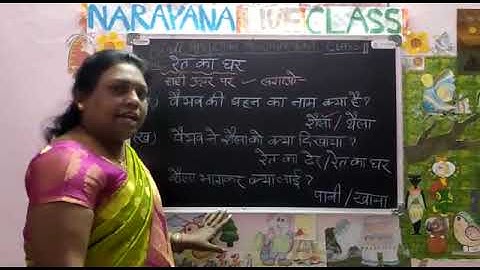 NARAYANA LIVE CLASS
CLASS-II
रेत का घर
सही उत्तर पर ✓ लगाओ-
वैभव की बहन का नाम क्या है?
शैला / थैला
(ख) वैभव ने शैला को क्या दिखाया?
रेत का ढेर / रेत का घर
शैला भागकर क्या लाई?
पानी / खाना